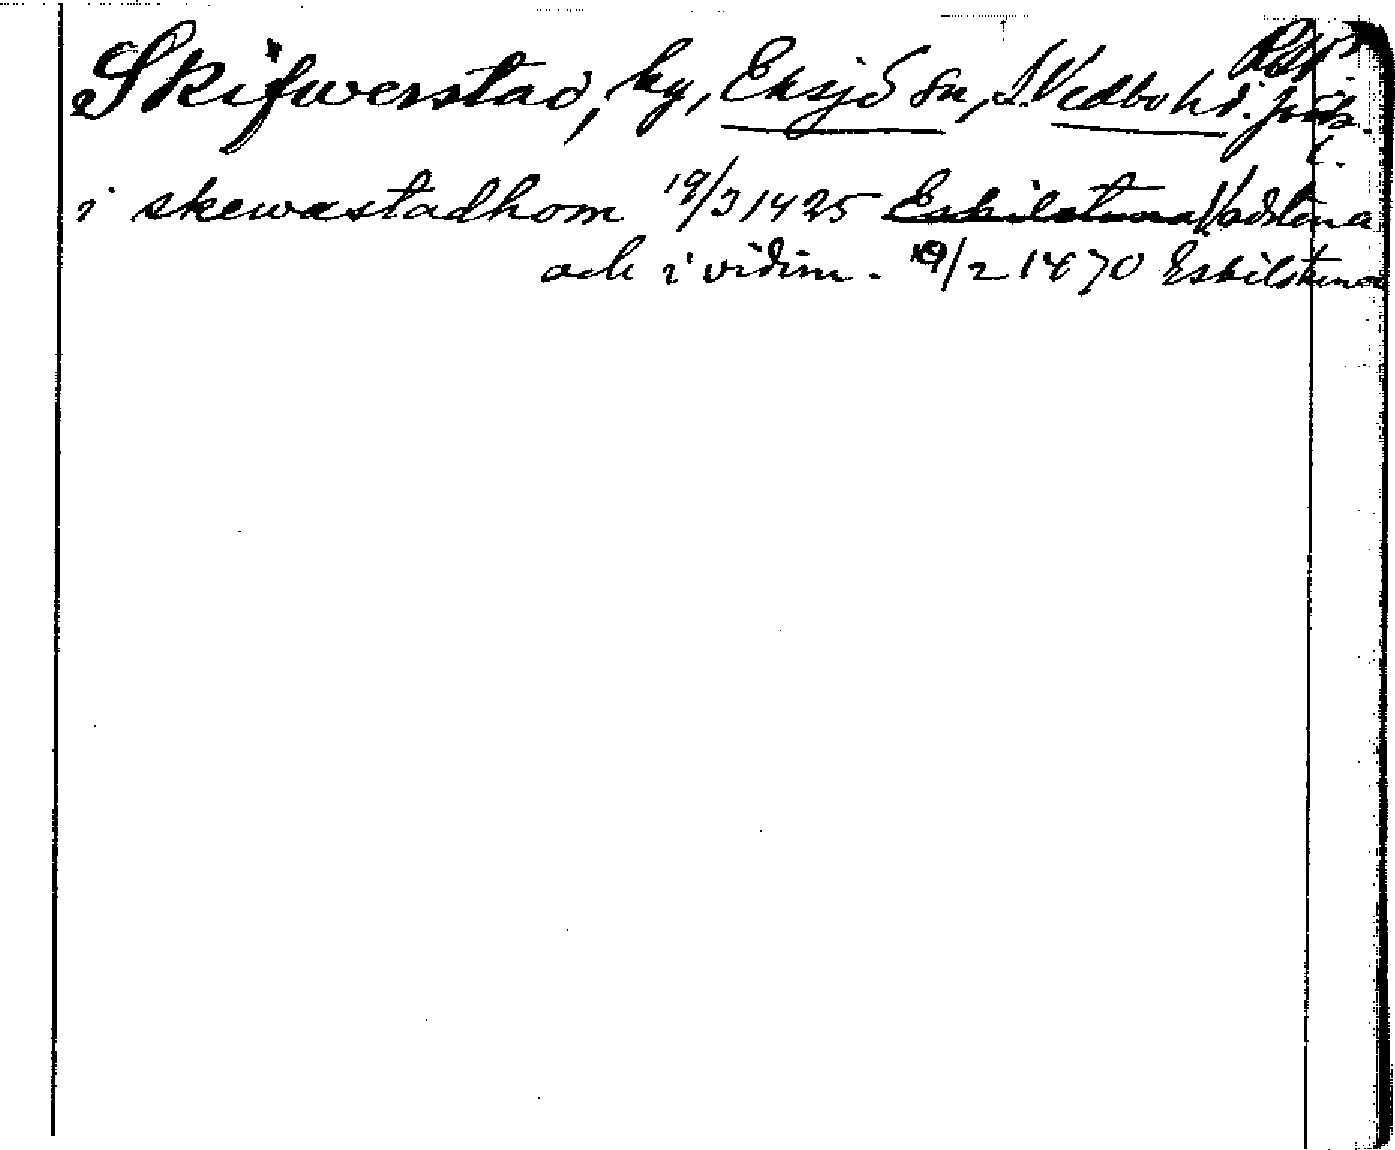 Skifwerstad, by, Eksjö sn, S. Vedbo hd.
i skewastadhom 19/3 1425 Eskilstuna Vadstena
och i vidim. 19/2 1470 Eskilstuna